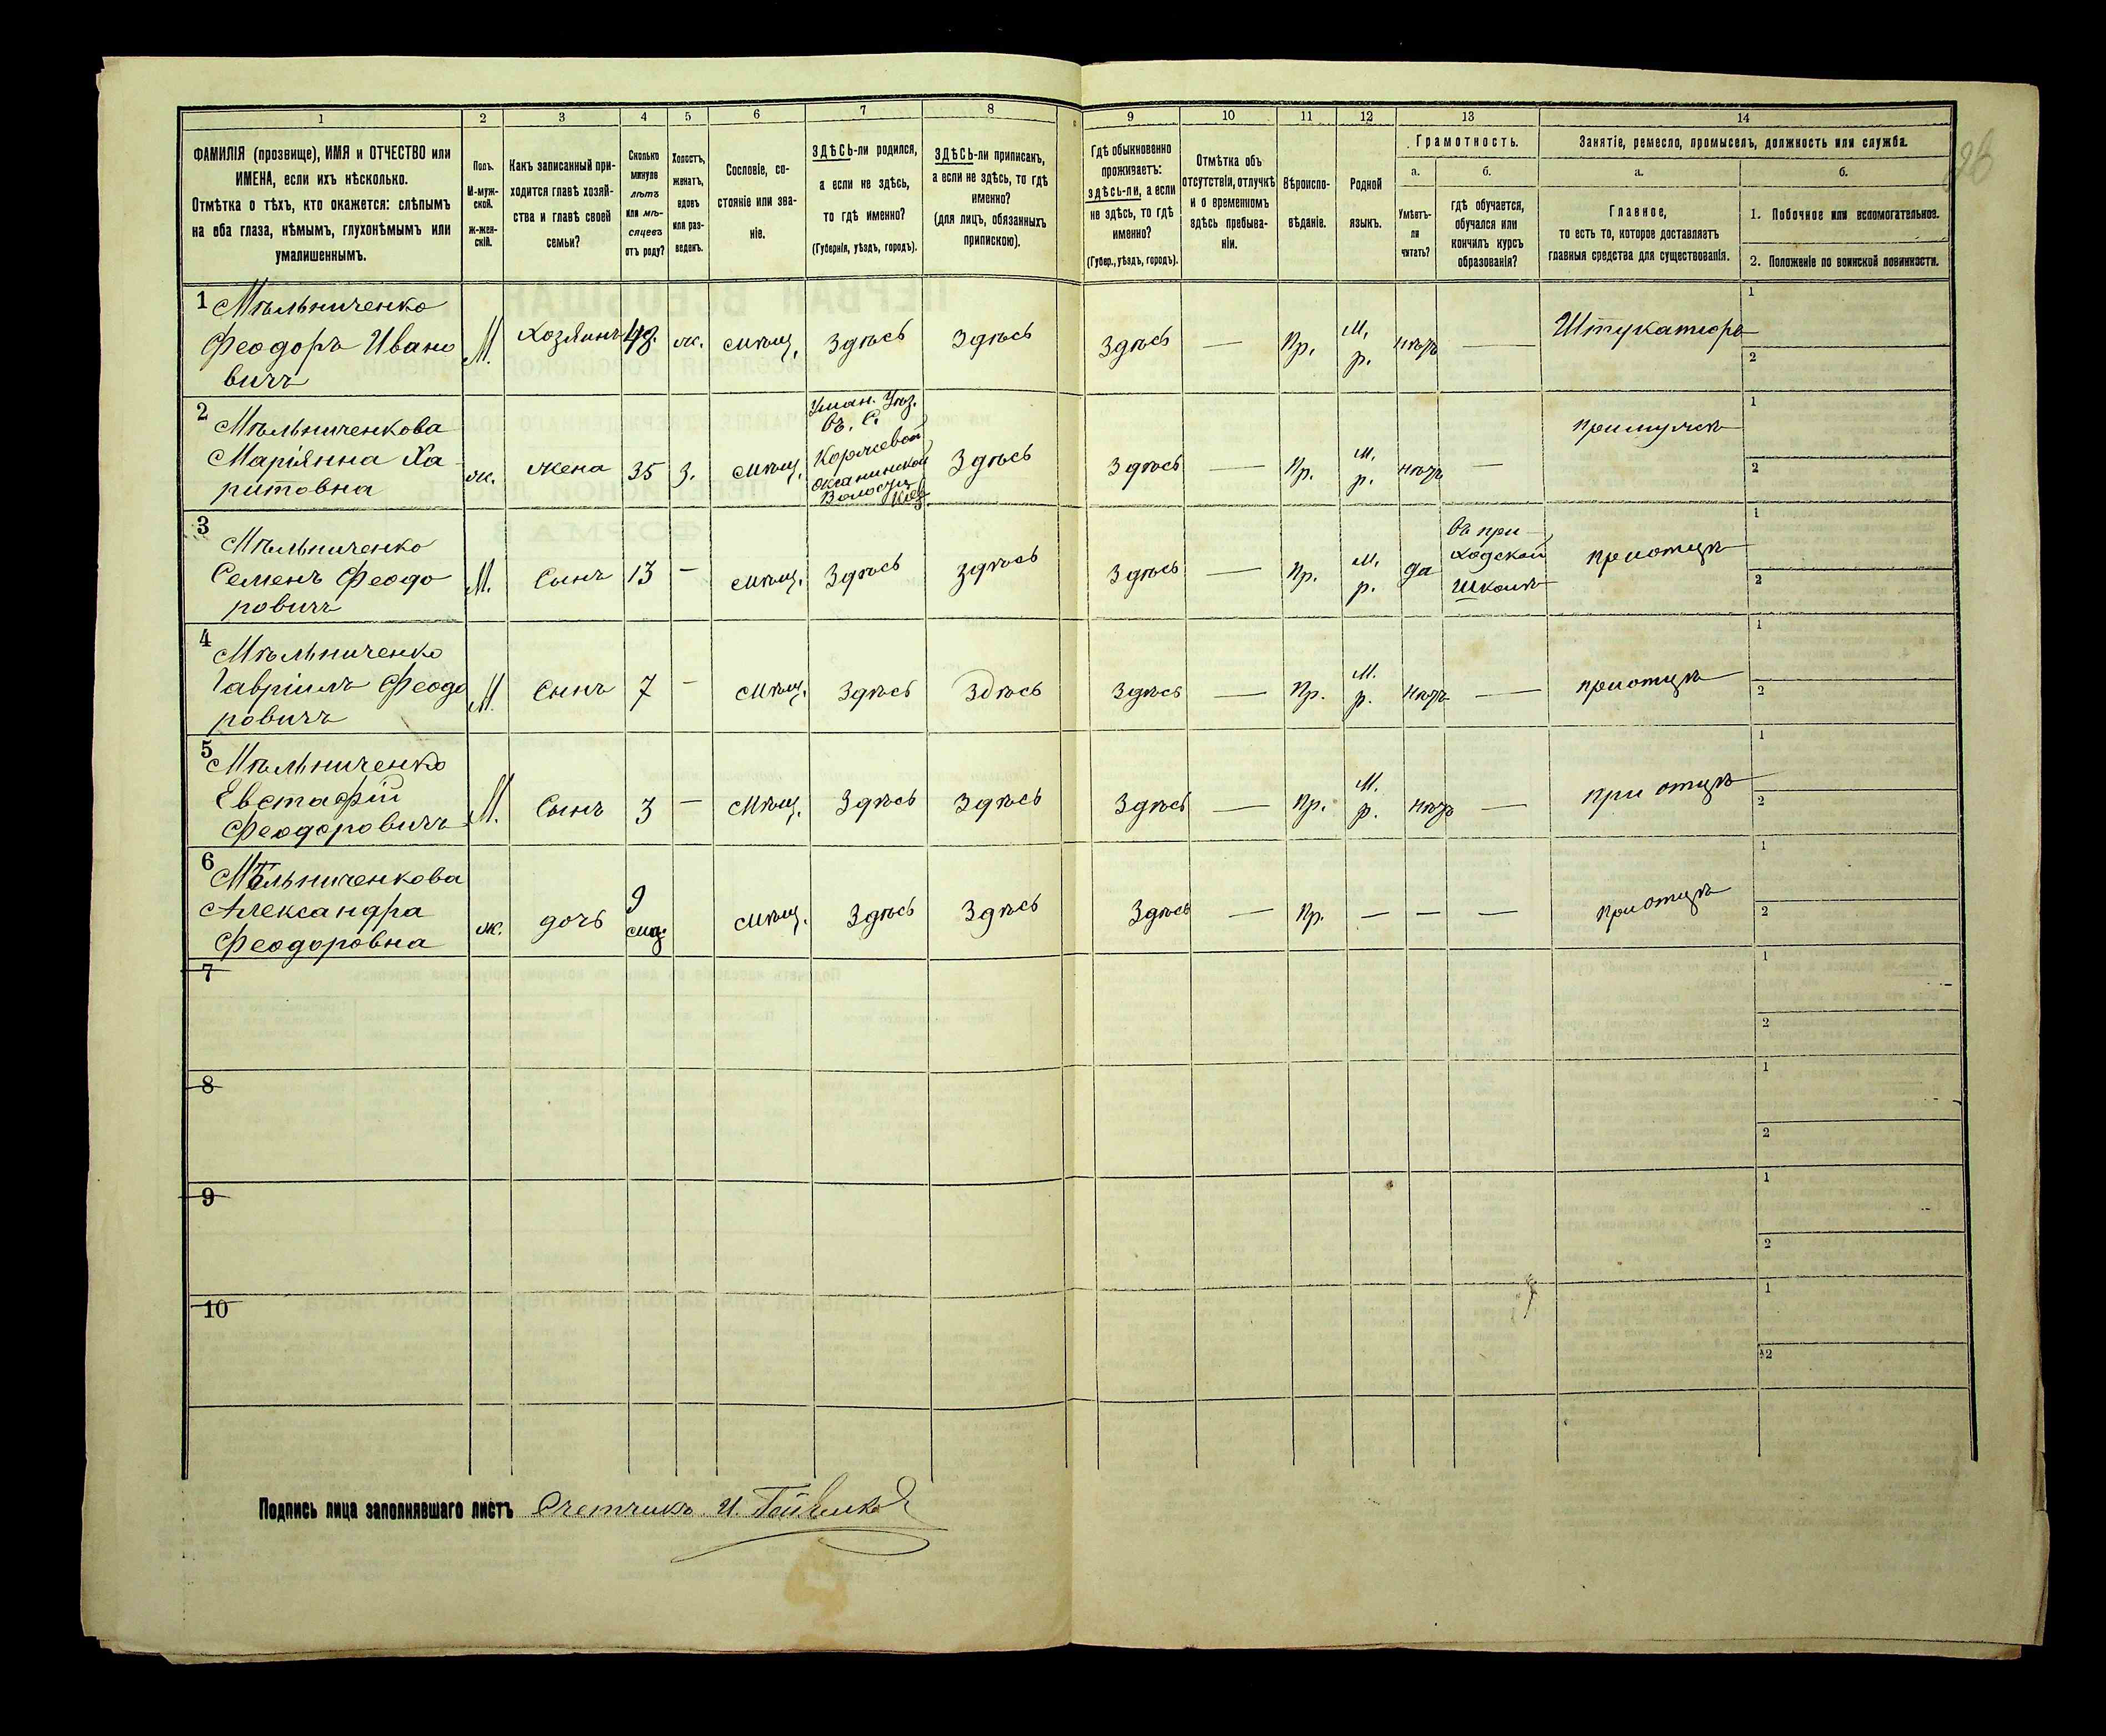 1 2 3 4 5 6 7 8 9 10 11 12 13 14
ФАМИЛІЯ (прозвище), ИМЯ и ОТЧЕСТВО или
ИМЕНА, если ихъ нѣсколько.
Отмѣтка о тѣхъ, кто окажется: слѣпымъ
на оба глаза, нѣмымъ, глухонѣмымъ или
умалишеннымъ.
Полъ.
М-муж-
ской.
Ж-жен-
скій.
Какъ записанный при-
ходится главѣ хозяй-
ства и главѣ своей
семьи?
Сколько
минуло
лѣтъ
или мѣ-
сяцевъ
отъ роду?
Холостъ,
женатъ,
вдовъ
или раз-
веденъ.
Сословіе, со-
стояніе или зва-
ніе.
ЗДѢСЬ-ли родился,
а если не здѣсь,
то гдѣ именно?
(Губернія, уѣздъ, городъ).
ЗДѢСЬ-ли приписанъ,
а если не здѣсь, то гдѣ
именно?
(для лицъ, обязанныхъ
припискою).
Гдѣ обыкновенно
проживаетъ:
здѣсь-ли, а если
не здѣсь, то гдѣ
именно?
(Губер., уѣздъ, городъ).
Отмѣтка объ
отсутствіи, отлучкѣ
и о временномъ
здѣсь пребыва-
ніи.
Вѣроиспо-
вѣданіе.
Родной
языкъ.
Грамотность.
а.
Умѣетъ-
ли
читать?
б.
гдѣ обучается,
обучался или
кончилъ курсъ
образованія?
Занятіе, ремесло, промыселъ, должность или служба.
а.
Главное,
то есть то, которое доставляетъ
главныя средства для существованія.
б.
1. Побочное или вспомогательное.
2. Положеніе по воинской повинности.
1 Мѣльниченко
Феодоръ Ивано
вичъ
М. Хозяинъ 48. ж. мѣщ. Здѣсь Здѣсь Здѣсь — Пр. М. р. нѣтъ — Штукатюръ
1
2
2 Мѣльниченкова
Маріянна Ха
ритовна
ж. жена 35 З. мѣщ.
Уман. Уѣз.
въ. С.
Коржевой
Оксанинской
Волости
Кіев.
Здѣсь Здѣсь — Пр. М. р. нѣтъ — при мужѣ
1
2
3 Мѣльниченко
Семенъ Феодо
ровичъ
М. Сынъ 13 — мѣщ. Здѣсь Здѣсь Здѣсь — Пр. М. р. да
въ при-
ходской
Школѣ
при отцѣ
1
2
4 Мѣльниченко
Гавріилъ Феодо
ровичъ
М Сынъ 7 — мѣщ. Здѣсь Здѣсь Здѣсь — Пр. М. р. нѣтъ — при отцѣ
1
2
5 Мѣльниченко
Евстафій
Феодоровичъ
М. Сынъ 3 — мѣщ. Здѣсь Здѣсь Здѣсь — Пр. М. р. нѣтъ — при отцѣ
1
2
6 Мѣльниченкова
Александра
Феодоровна
ж. дочь 9 мѣс. мѣщ. Здѣсь Здѣсь Здѣсь — Пр. — — — при отцѣ
1
2
7
1
2
8
1
2
9
1
2
10
1
2
Подпись лица заполнявшаго листъ Счетчикъ И.